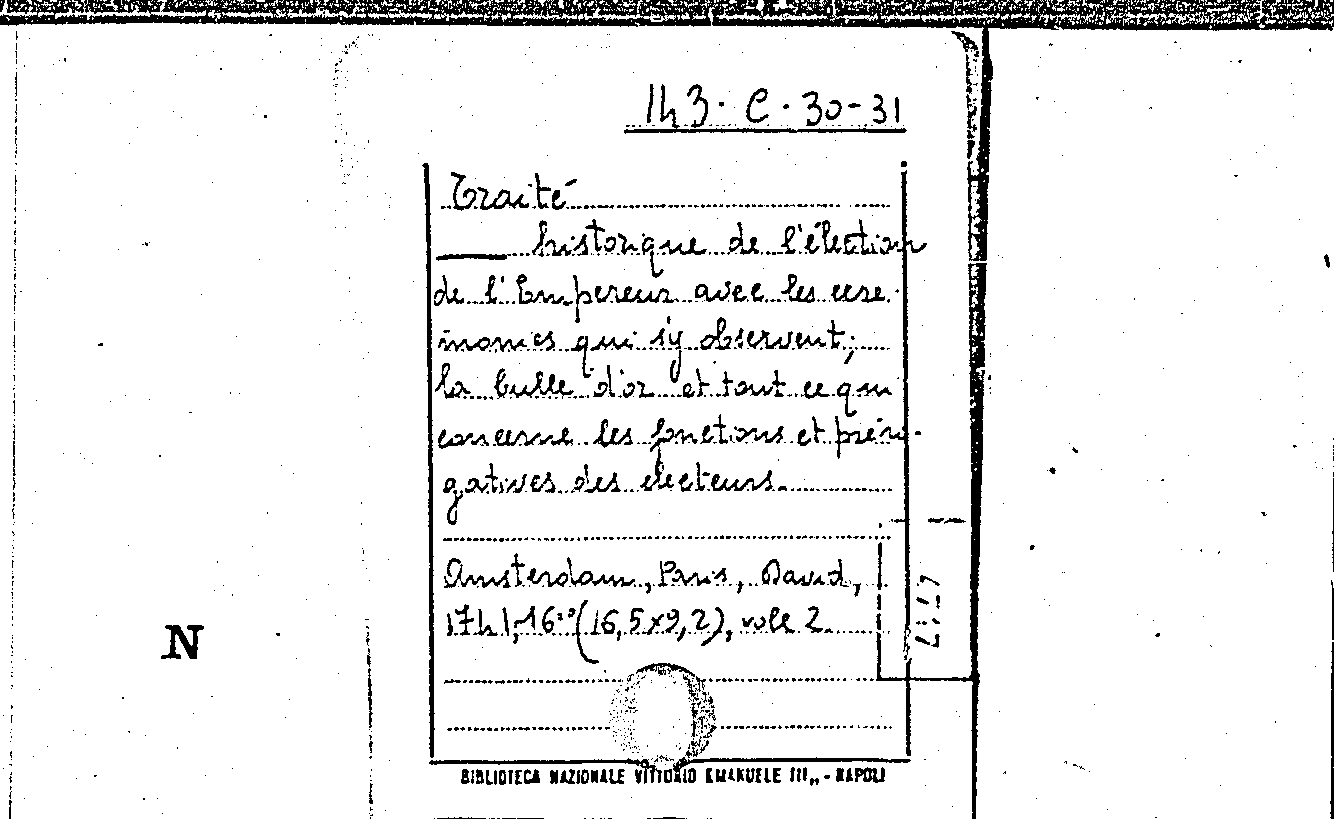 143. C. 30-31
Traité
historique de l'élection
de l'Empereur avec les cere-
monies qui s'y observent;
la bulle d'or et tout ce qui
concerne les fonctions et préro-
gatives des électeurs.
Amsterdam, Paris, David,
1741, 16° (16,5x9,2), voll 2.
N
BIBLIOTECA NAZIONALE VITTORIO EMANUELE III„ - NAPOLI